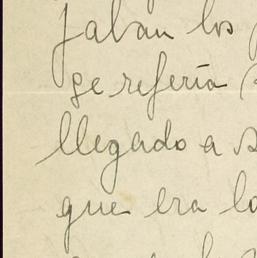 jaban los
se refería
llegado a
que era